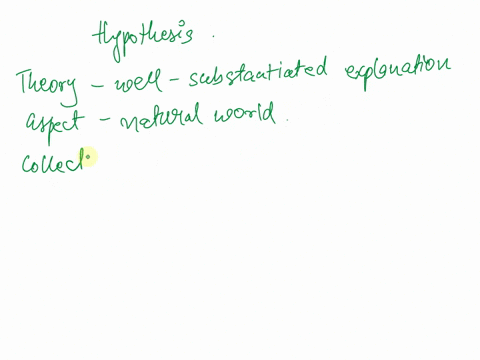 Hypothesis.
Theory - well - substantiated explanation
aspect - natural world.
collect